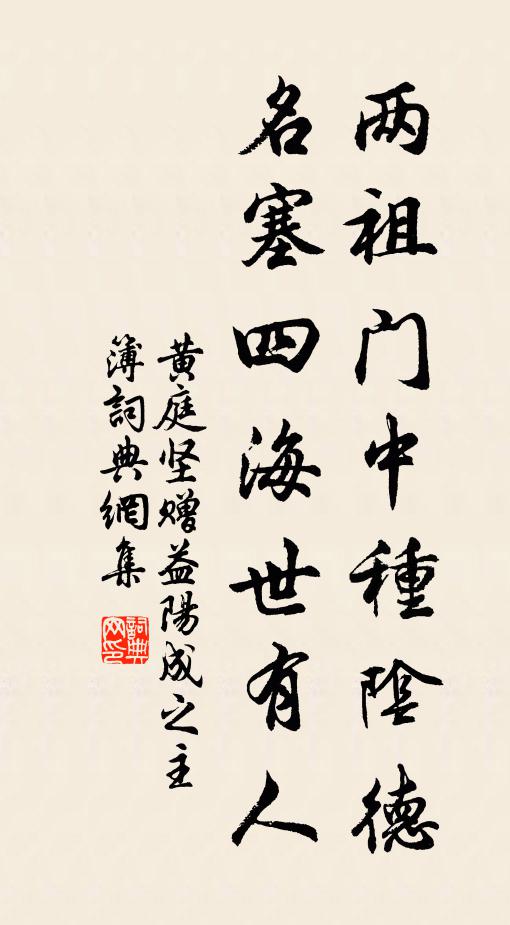 两祖门中種陰德
名塞四海世有人
黄庭坚赠益陽成之主
簿詞典網集
詞典
网印